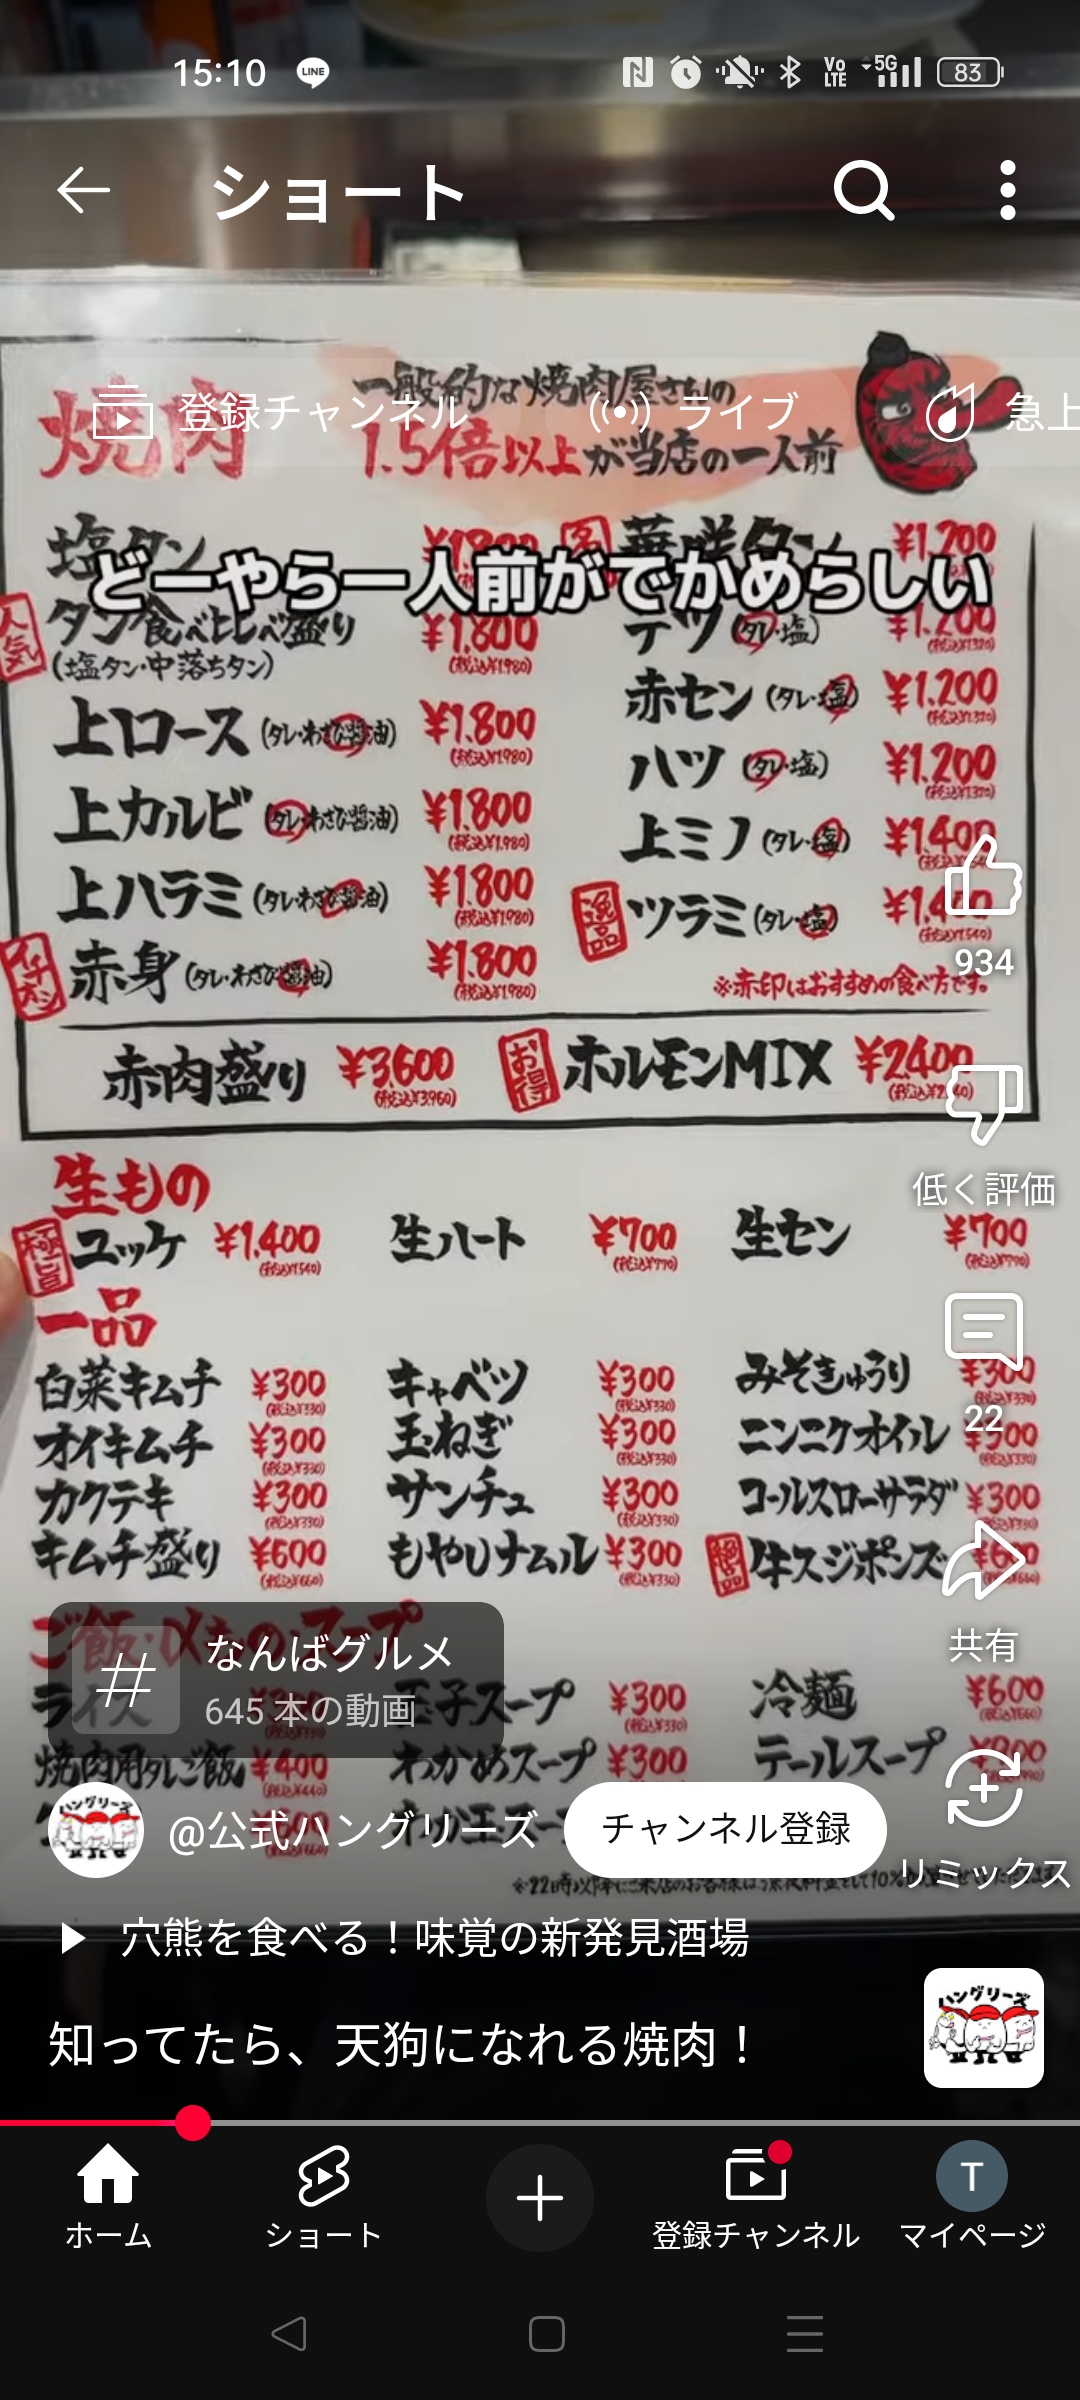 15:10
LINE
Vo
LTE
5G
83
ショート
登録チャンネル
ライブ
急上
焼肉
一般的な焼肉屋さんの
1.5倍以上が当店の一人前
どーやら一人前がでかめらしい
塩タン
¥1,200
人気
タン食べ比べ盛り
¥1,800
(税込¥1,980)
(塩タン・中落ちタン)
テツ (タレ・塩)
¥1,200
上ロース (タレ・わさび醤油)
¥1,800
(税込¥1,980)
赤セン (タレ・塩)
¥1,200
上カルビ (タレ・わさび醤油)
¥1,800
(税込¥1,980)
ハツ (タレ・塩)
¥1,200
上ハラミ (タレ・わさび醤油)
¥1,800
(税込¥1,980)
上ミノ (タレ・塩)
¥1,400
イチオシ
赤身 (タレ・わさび醤油)
¥1,800
(税込¥1,980)
逸品
ツラミ (タレ・塩)
※赤印はおすすめの食べ方です。
赤肉盛り
¥3,600
(税込¥3,960)
お得
ホルモンMIX
¥2,400
934
低く評価
生もの
極旨
ユッケ
¥1,400
(税込¥1,540)
生ハート
¥700
(税込¥770)
生セン
¥700
(税込¥770)
一品
白菜キムチ
¥300
(税込¥330)
キャベツ
¥300
(税込¥330)
みそきゅうり
¥300
22
オイキムチ
¥300
(税込¥330)
玉ねぎ
¥300
(税込¥330)
ニンニクオイル
¥300
カクテキ
¥300
(税込¥330)
サンチュ
¥300
(税込¥330)
コールスローサラダ
¥300
キムチ盛り
¥600
(税込¥660)
もやしナムル
¥300
(税込¥330)
牛スジポンズ
共有
なんばグルメ
645 本の動画
ライス
玉子スープ
¥300
(税込¥330)
冷麺
¥600
焼肉用タレご飯
¥400
わかめスープ
¥300
テールスープ
@公式ハングリーズ
チャンネル登録
リミックス
穴熊を食べる！味覚の新発見酒場
ハングリーズ
知ってたら、天狗になれる焼肉！
ホーム
ショート
登録チャンネル
T
マイページ